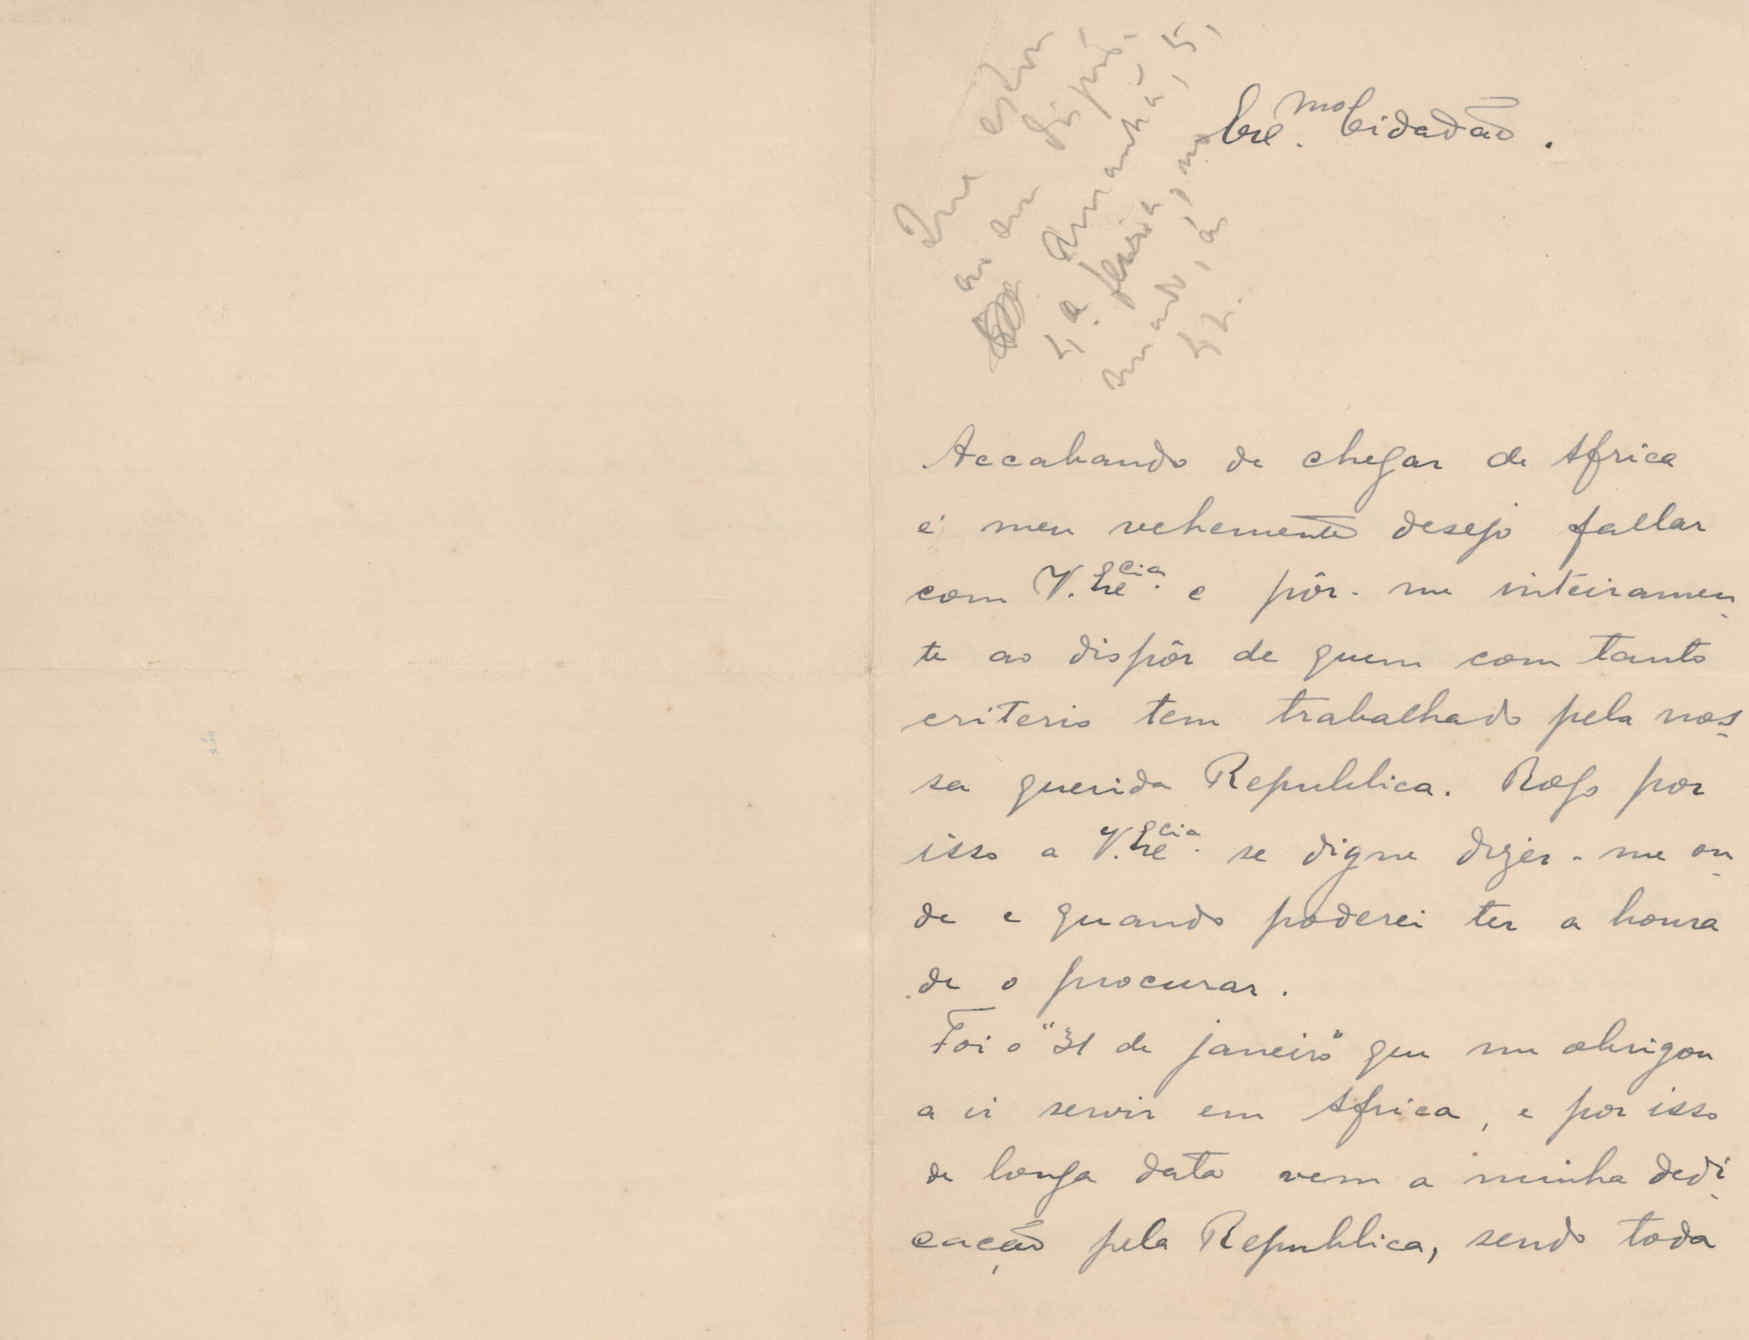 Que estou
ao seu dispôr.
Amanhã, 5,
4.ª feira
, no
, ás
4 h.
Exc.mo Cidadão.
Accabando de chegar de Africa
é meu vehemente desejo fallar
com V. Excia. e pôr-me inteiramen-
te ao dispôr de quem com tanto
criterio tem trabalhado pela nos-
sa querida Republica. Rogo por
isso a V. Excia. se digne dizer-me on-
de e quando poderei ter a honra
de o procurar.
Foi o "31 de janeiro" que me obrigou
a ir servir em Africa, e por isso
de longa data vem a minha dedi-
cação pela Republica, sendo toda